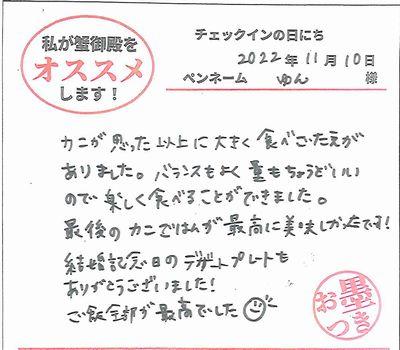 私が蟹御殿を
オススメ
します！
チェックインの日にち
2022年11月10日
ペンネーム ゆん 様
カニが思った以上に大きく食べごたえが
ありました。バランスもよく量もちょうどいい
ので楽しく食べることができました。
最後のカニごはんが最高に美味しかったです!
結婚記念日のデザートプレートも
ありがとうございました!
ご飯全部が最高でした
お墨つき